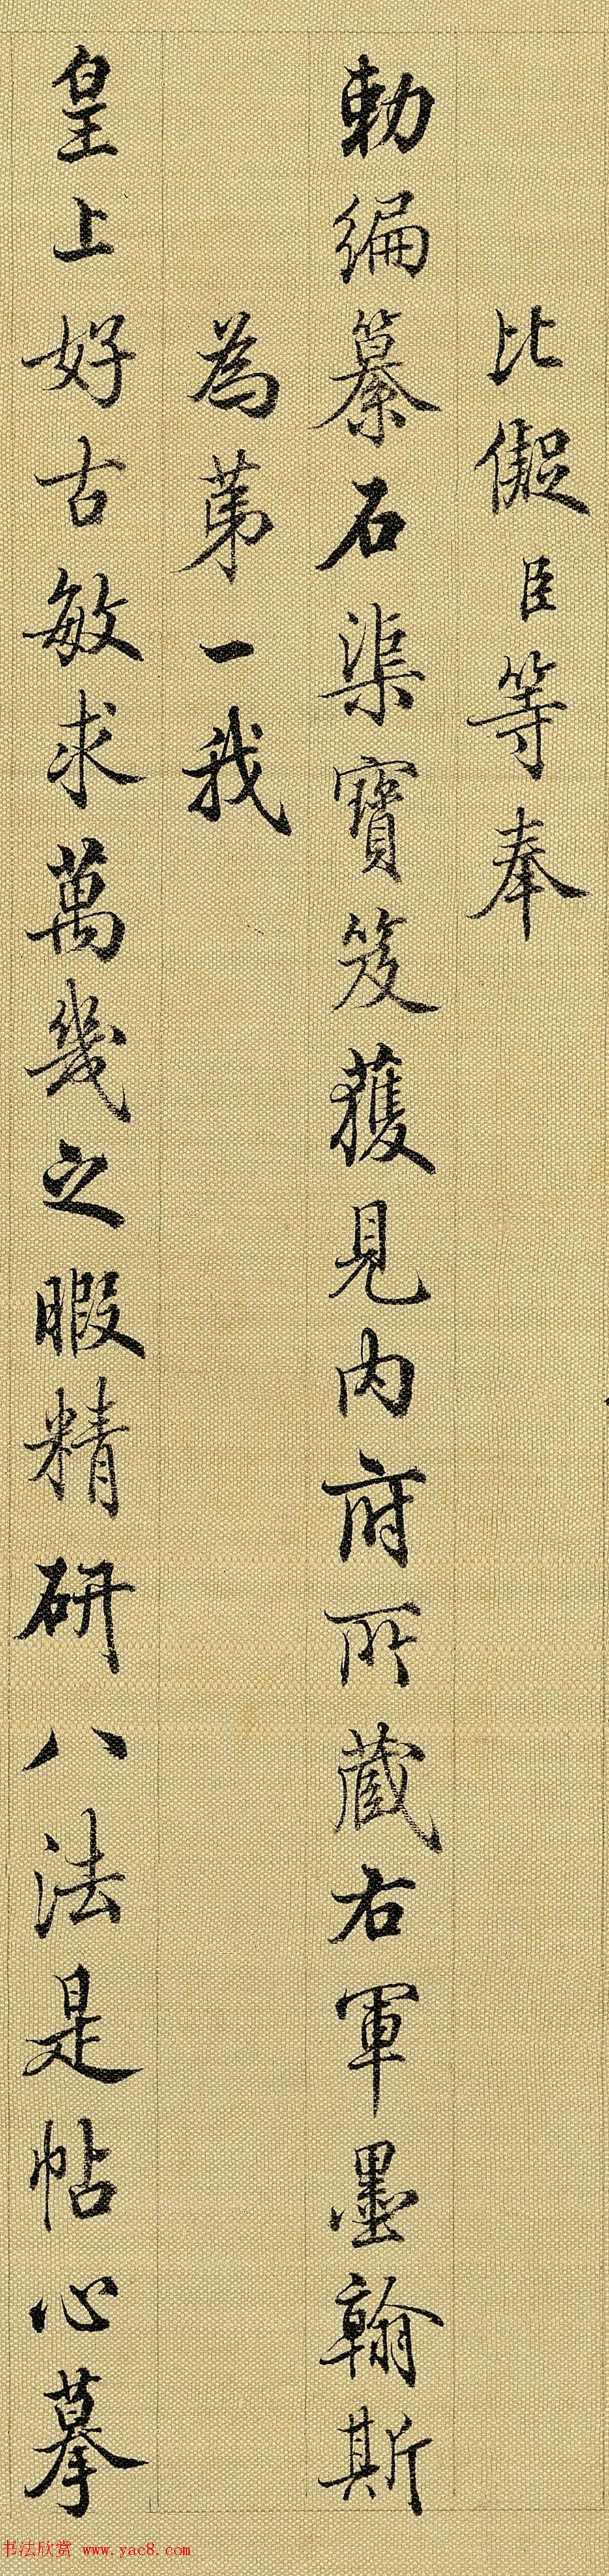 比儗臣等奉
勅編纂石渠寳笈獲見内府所蔵右軍墨翰斯
為苐一我
皇上好古敏求萬幾之暇精研八法是帖心摹
书法欣赏 www.yac8.com